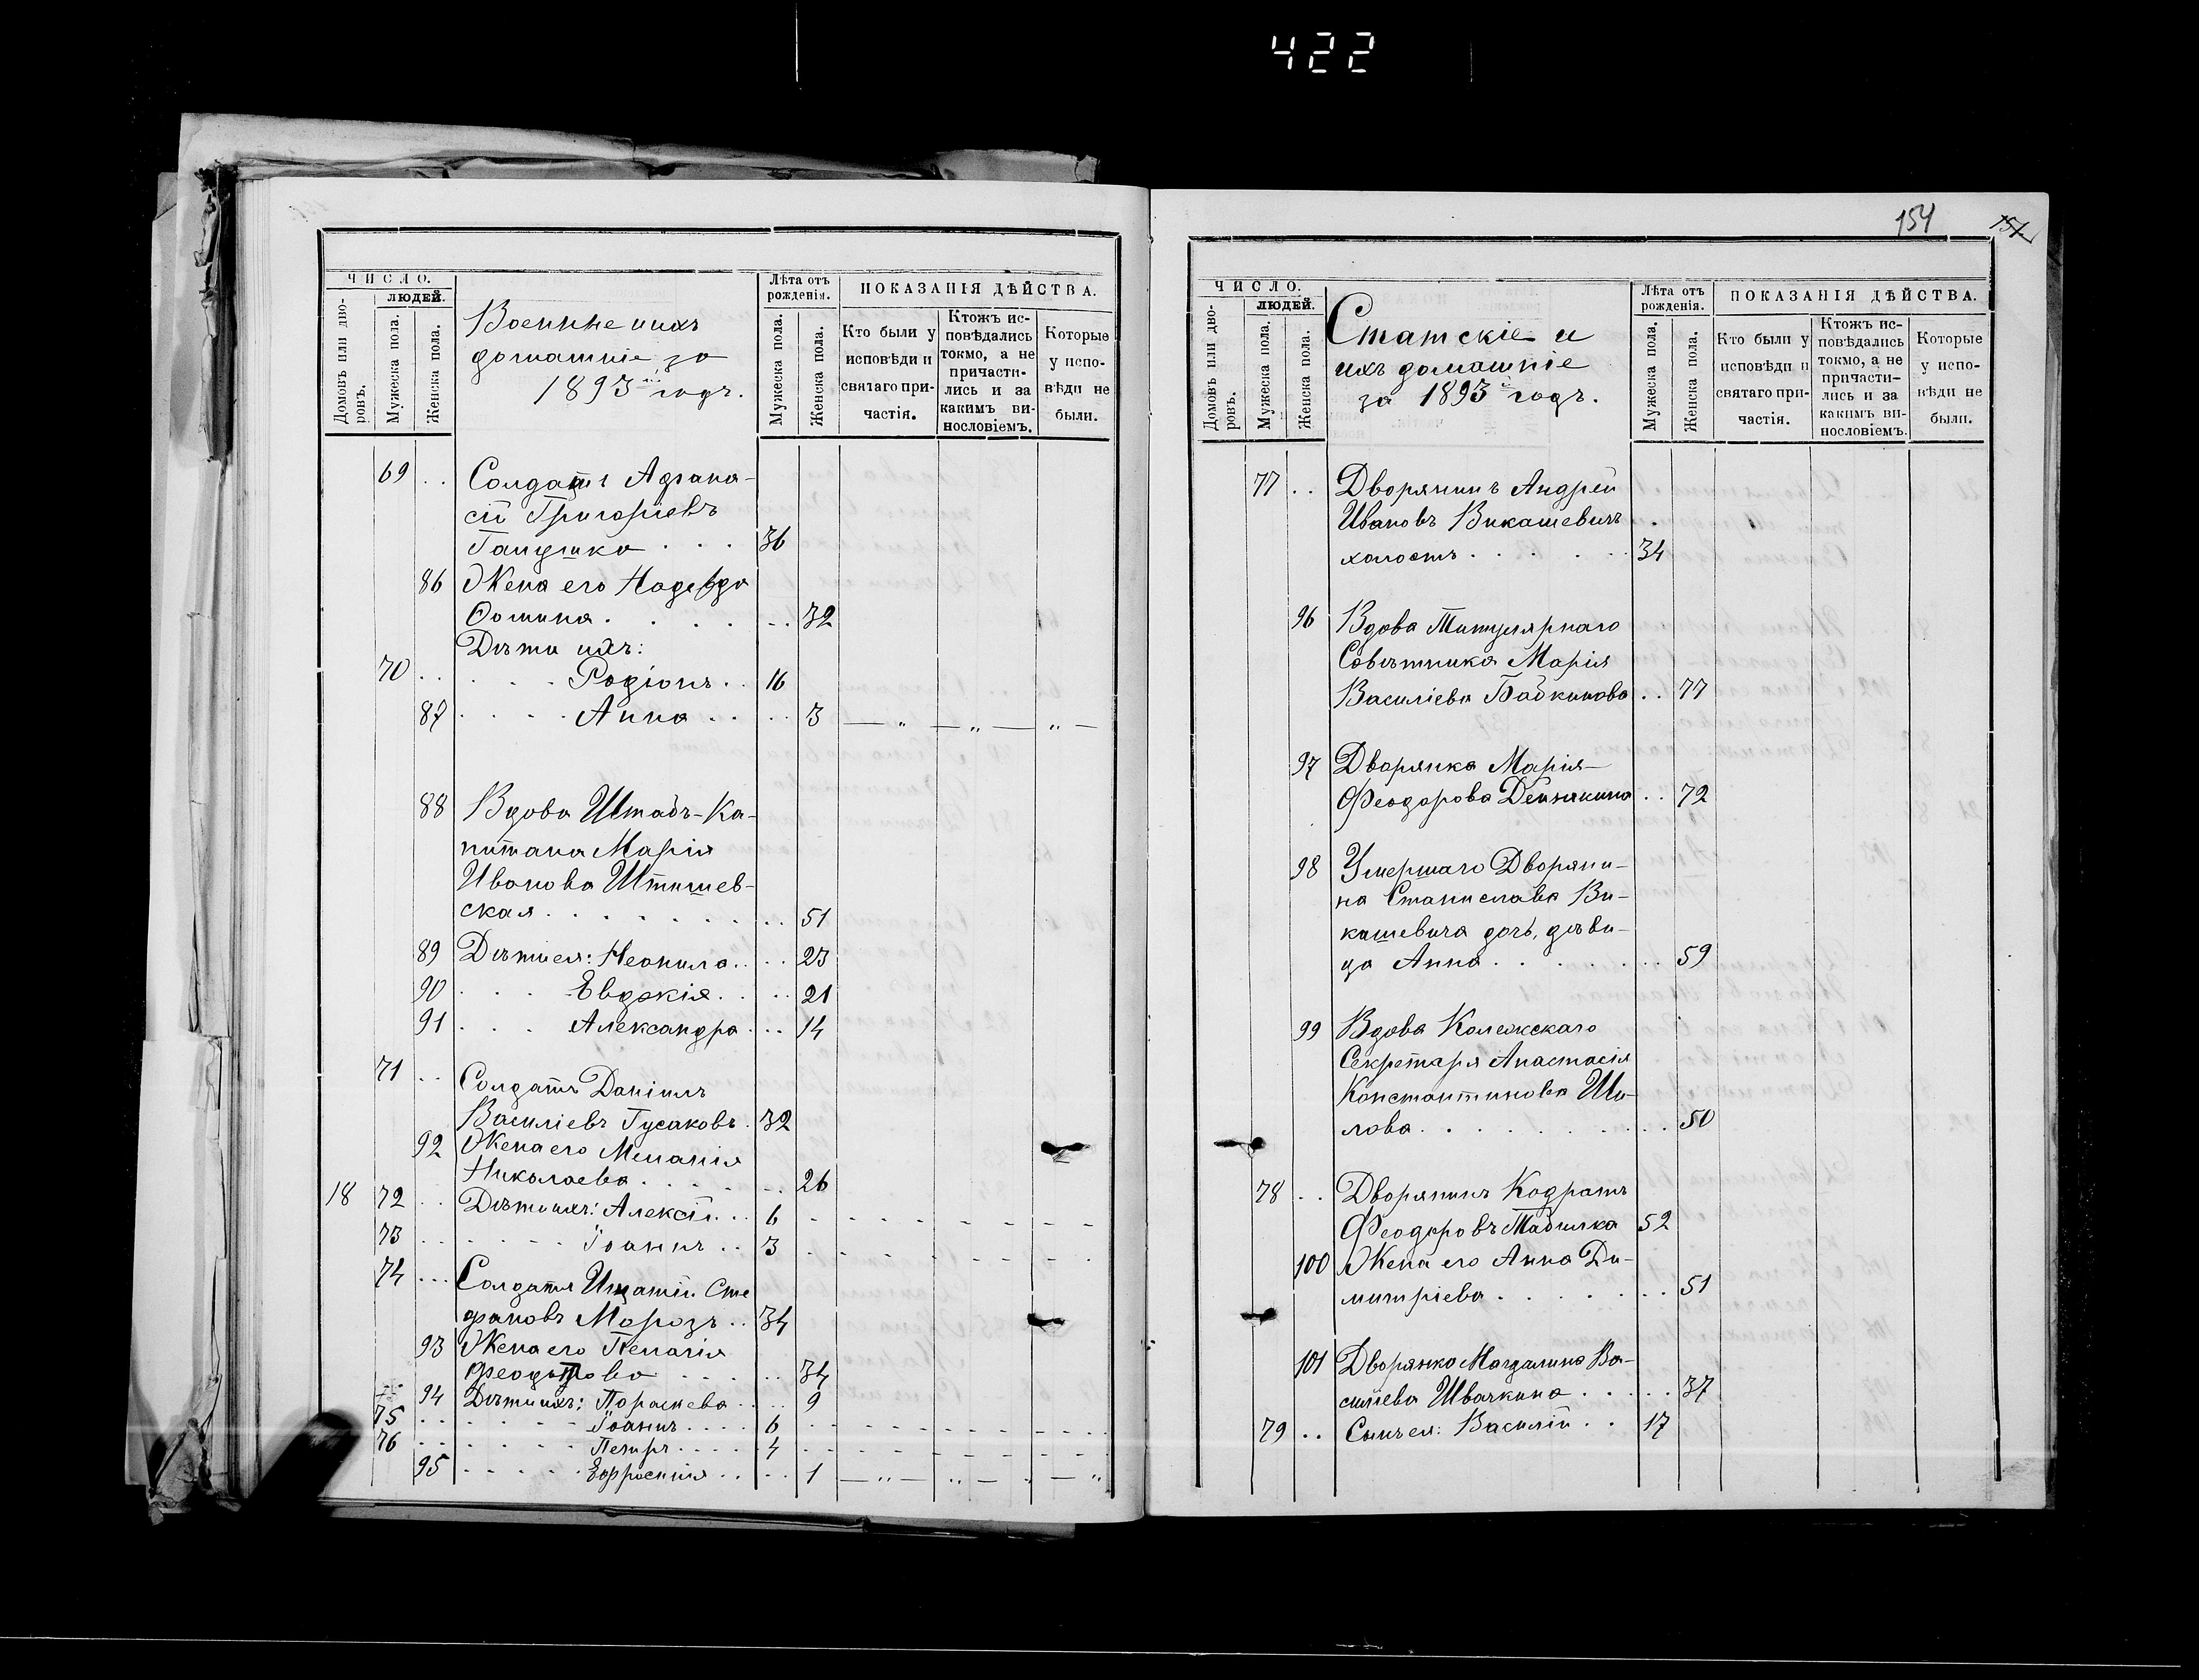 422
ЧИСЛО.
ЛЮДЕЙ.
Домовъ или дворовъ.
Мужеска пола.
Женска пола.
Военные и ихъ
домашніе за
1893 ій годъ.
Лѣта отъ рожденія.
Мужеска пола.
Женска пола.
ПОКАЗАНІЯ ДѢЙСТВА.
Кто были у исповѣди и святаго причастія.
Ктожъ исповѣдались токмо, а не причастились и за какимъ винословіемъ.
Которые у исповѣди не были.
69 .. Солдатъ Афана-
сій Григоріевъ
36
86 Жена его Надежда
Фомина . . . . . . 32
Дѣти ихъ:
70 .. . . . Родіонъ . . 16
87 . . . . Анна . . . . 3 — „ — „ — „ —
88 Вдова Штабъ-Ка-
питана Марія
Иванова
ская . . . . . . . . 51
89 Дѣти ея: Неонила . . . . 23
90 . . . Евдокія . . . . 21
91 . . . Александра . . . 14
71 .. Солдатъ Даніилъ
Василіевъ Гусаковъ . 32
92 Жена его Меланія
Николаева . . . . . . 26
18 72 .. Дѣти ихъ: Алексій . . . 6 - - - - - - - -
73 .. . . . . Іоаннъ . . 3 - - - - - - - -
74 ... Солдатъ Игнатій Сте
фановъ Морозъ . . 34
93 Жена его Пелагія
. . . . . . 34
94 Дѣти ихъ: Параскева . . . . 9
75 . . . . . . Іоаннъ . . . . 6 - - - - - - - -
76 . . . . . . Петръ . . . . 4 - - - - - - - -
95 . . . . . Ефросинія . . . . 1 — „ — „ — . — „
154
151
ЧИСЛО.
ЛЮДЕЙ.
Домовъ или дворовъ.
Мужеска пола.
Женска пола.
Статскіе и
ихъ домашніе
за 1893 ій годъ.
Лѣта отъ рожденія.
Мужеска пола.
Женска пола.
ПОКАЗАНІЯ ДѢЙСТВА.
Кто были у исповѣди и святаго причастія.
Ктожъ исповѣдались токмо, а не причастились и за какимъ винословіемъ.
Которые у исповѣди не были.
77 .. Дворянинъ Андрей
Ивановъ Викашевичъ
холостъ . . . . . . 34
96 Вдова Титулярнаго
Совѣтника Марія
Василіева Бабкинова . . 77
97 Дворянка Марія
Феодорова . . 72
98 Умершаго Дворяни-
на Станислава Ви-
кашевича дочь, дѣви-
ца Анна . . . . . . . . 59
99 Вдова Колежскаго
Секретаря Анастасія
Константинова Ши-
лова . . . . . . . . . . 50
78 .. Дворянинъ Кодратъ
Феодоровъ 52
100 Жена его Анна Ди-
митріева . . . . . . . 51
101 Дворянка Магдалина Ва-
силіева Ивашкина . . . . . 37
79 .. Сынъ ея: Василій . . 17